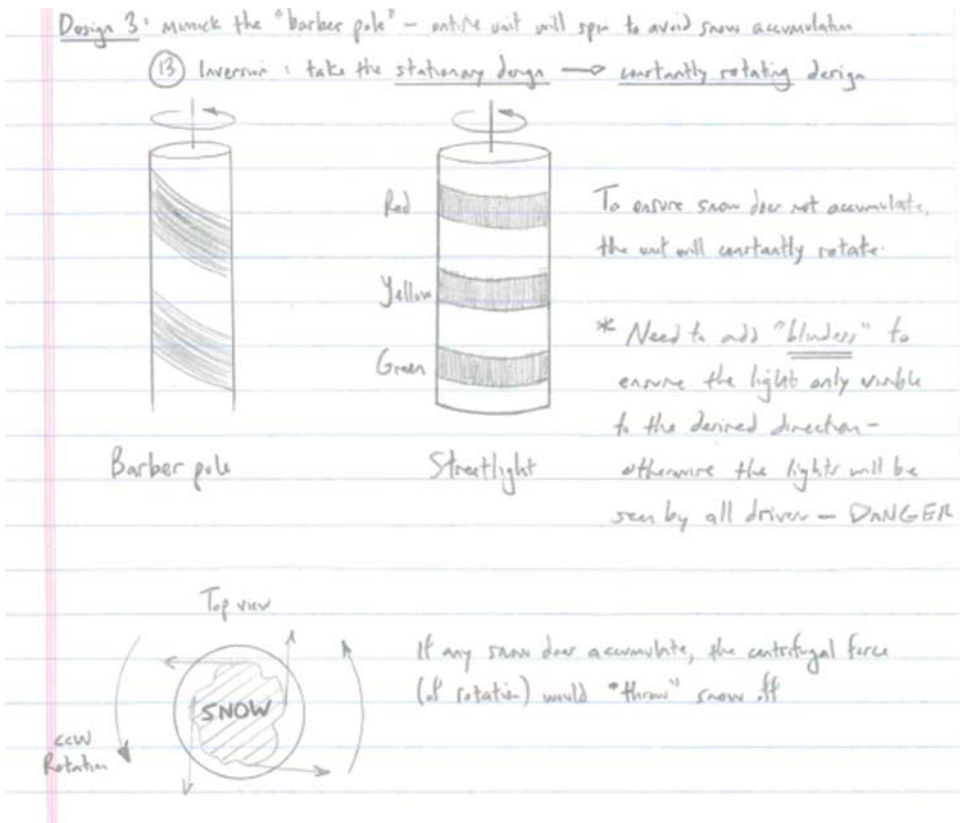 Design 3: mimick the "barber pole" - entire unit will spin to avoid snow accumulation
13 Inversion: take the stationary design → constantly rotating design
Red
Yellow
Green
To ensure snow does not accumulate,
the unit will constantly rotate.
* Need to add "blinders" to
ensure the light only visible
to the desired direction -
otherwise the lights will be
seen by all drivers - DANGER
Barber pole
Streetlight
Top view
SNOW
CCW
Rotation
If any snow does accumulate, the centrifugal force
(of rotation) would "throw" snow off